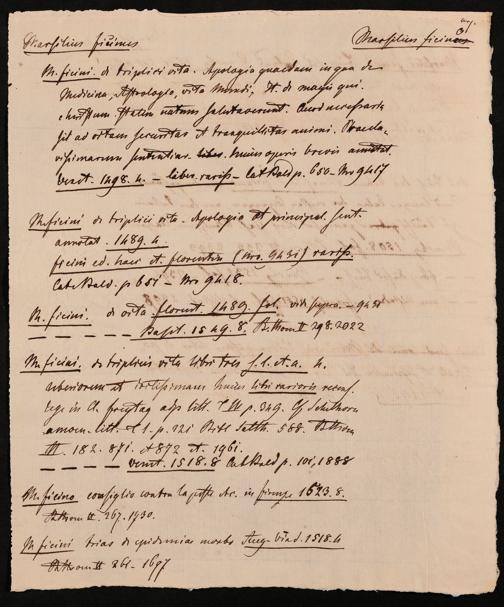 Marsilius ficinus Marsilius ficinus
M. ficini. de triplici vita. Apologia quaedam in qua de
Medicina, Astrologia, vita Mundi, It. de magis qui
christum statim natum salutaverunt. Quod necessaria
sit ad vitam securitas et tranquillitas animi. Praecla-
rissimarum sententiar. huius operis brevis annotat
venet. 1498. 4. — liber rariss — Cat Bald p. 650 — Nro 9467
M. ficini de triplici vita. Apologia et principal. sent.
annotat. 1489. 4.
ficini ed. haec et florentin (Nro. 9431) rariss.
Cat. Bald. p. 651 — Nro 9418.
M. ficini. de vita florent. 1489. fol. vide supra. — 9431
— — — — — Basil. 1549. 8. B. Thom II 298. 2022
M. ficini. de triplici vita libri tres s. l. et a. 4.
uberiorem et huius libri rarioris recens.
lege in Cl. freytag litt. T III p. 349. Cf Schelhorn
amoen. litt. T 1. p. 121 Bibl 588. B. Thom
III. 182. 871. et 872 et. 1961.
— — — — venet. 1518. 8 Cat Bald p. 101, 1888
M. ficino consiglio contra la peste etc. in firenze 1523. 8.
B. Thom II. 267. 1730.
M. ficini trias de epidemiae morbo Aug. Vind. 1518. 4
B. Thom II 261 - 1697